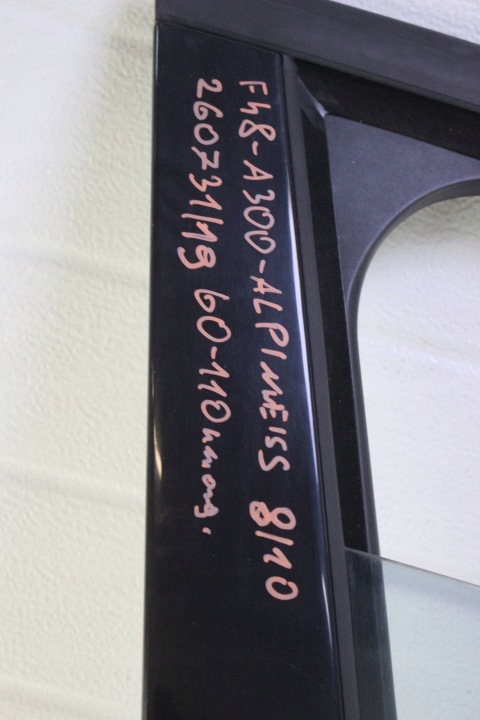 F48-A300-ALPINWEISS 8/10
260731/19 60-110